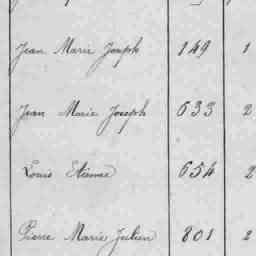 Jean Marie Joseph 149 1
Jean Marie Joseph 633 2
Louis Etienne 654 2
Pierre Marie Julien 801 2